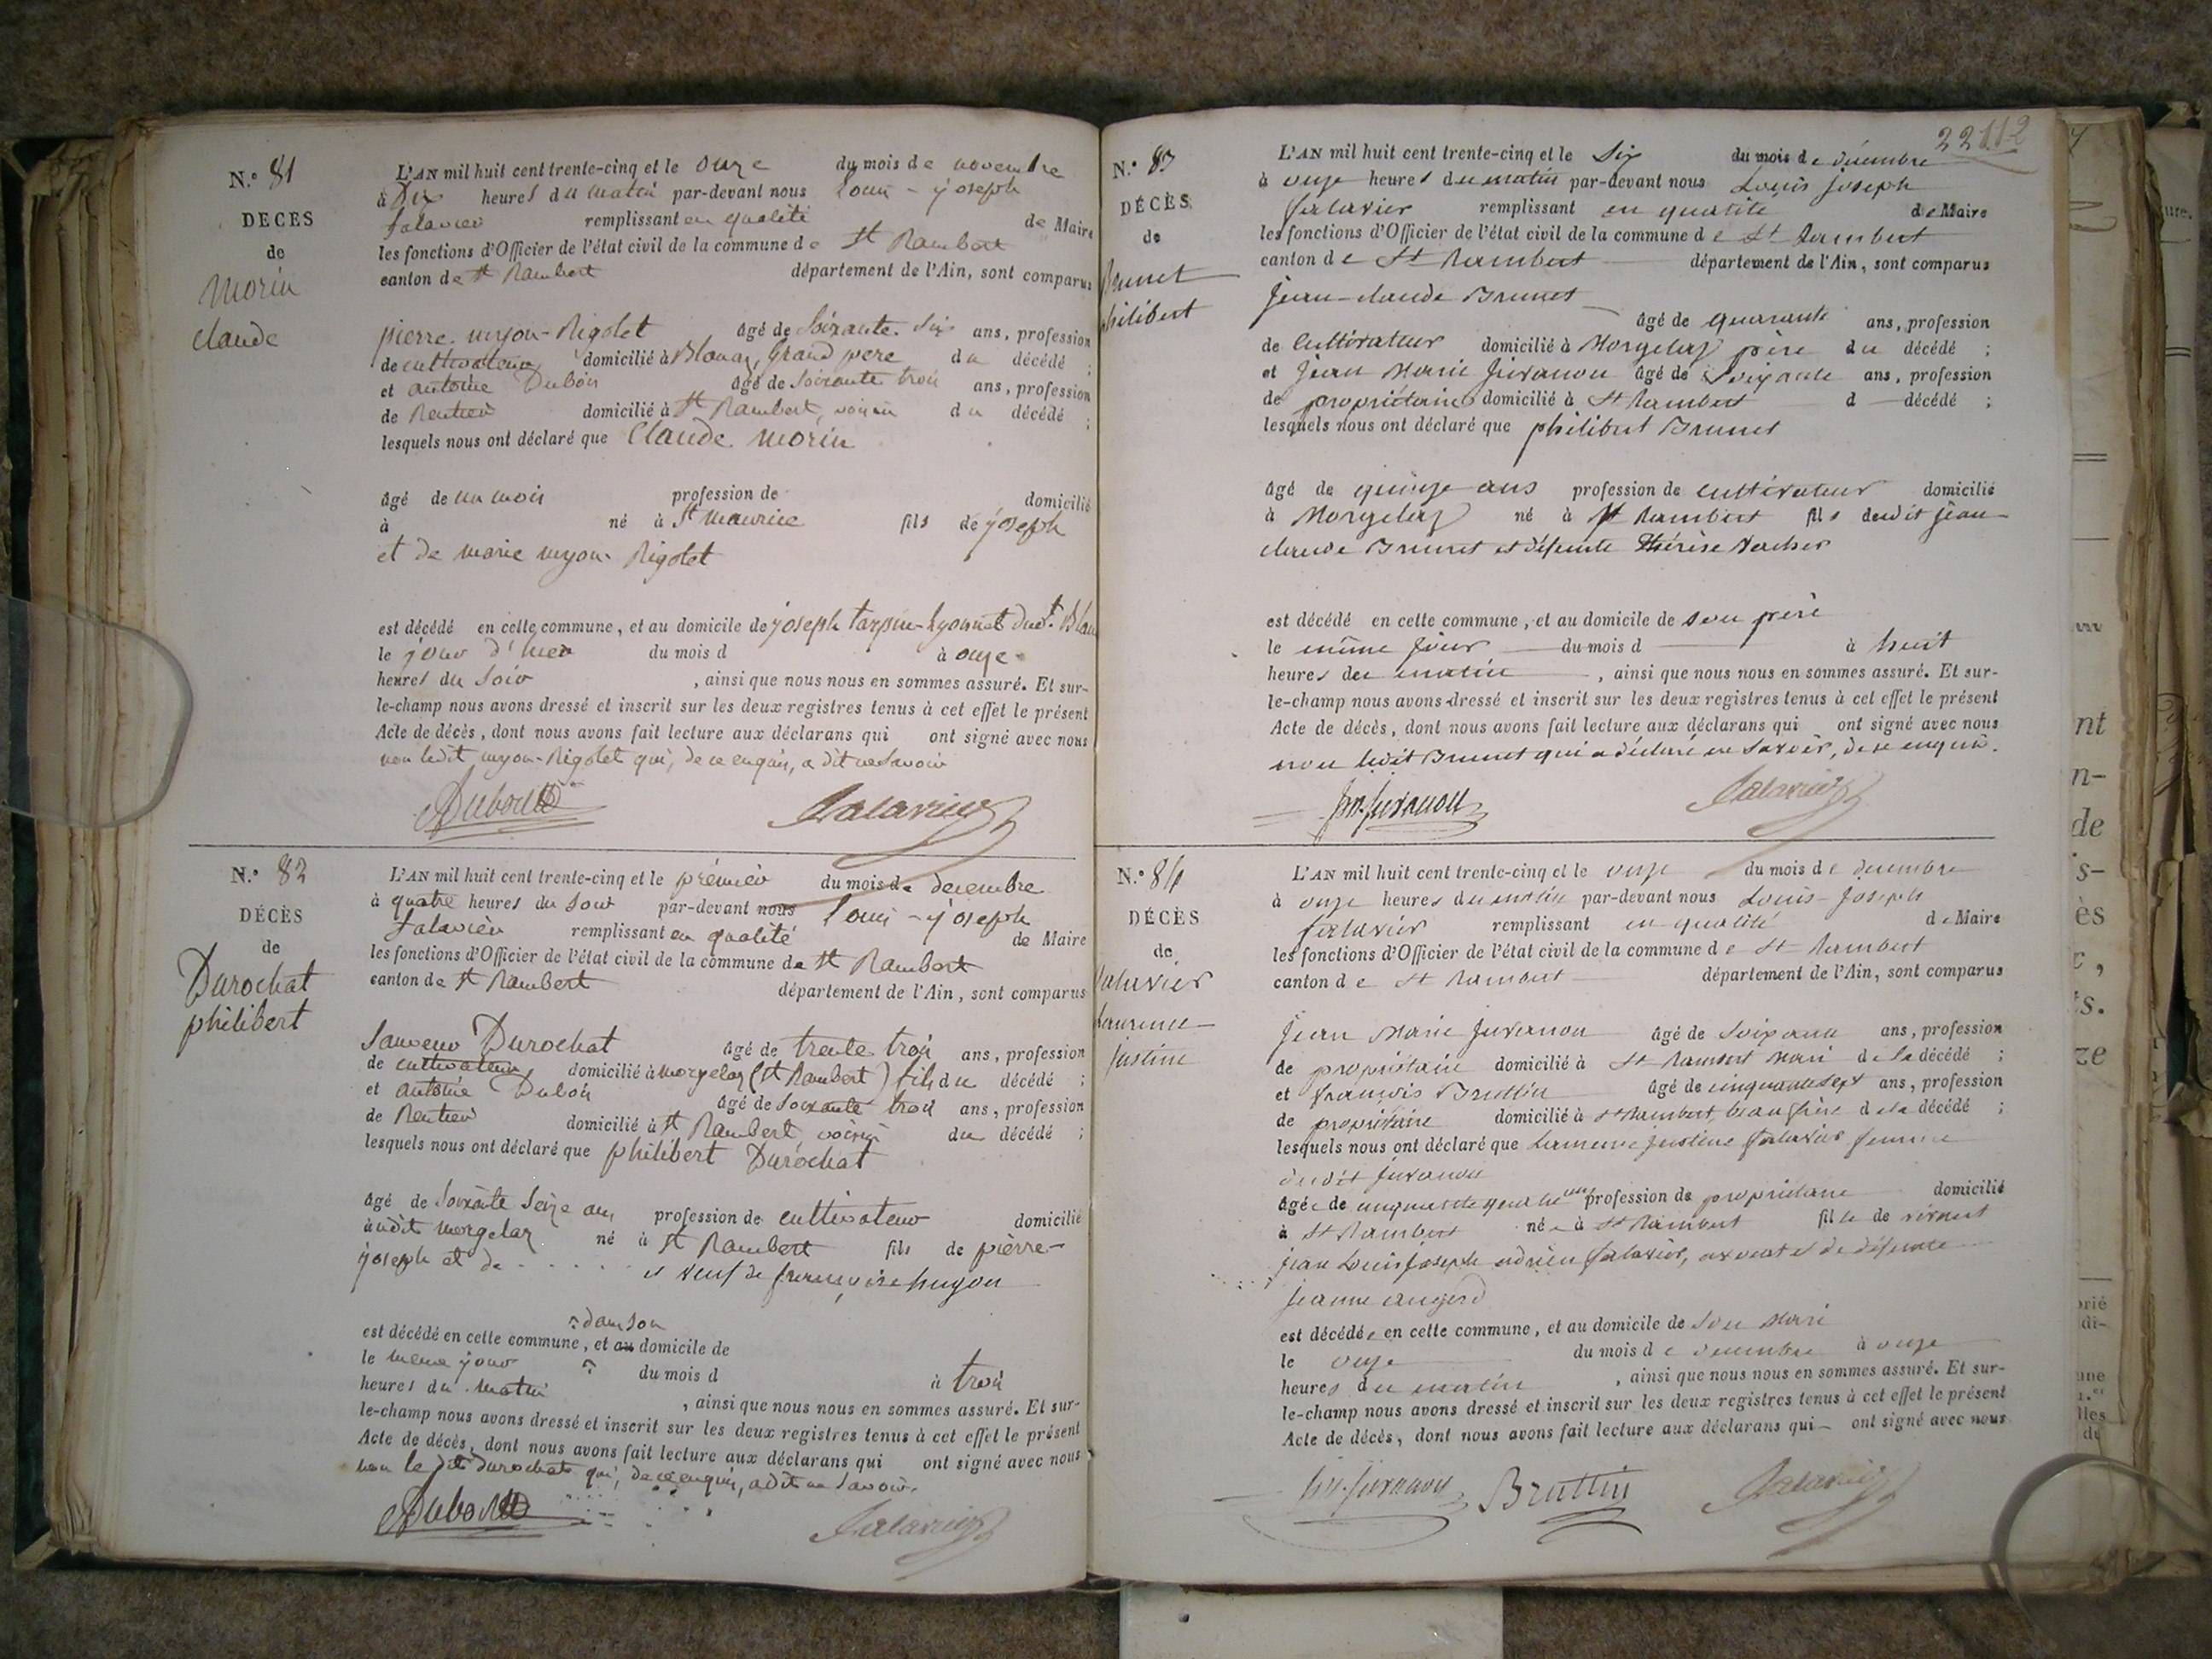 N.° 81
DECES
de
Morin
Claude
L'AN mil huit cent trente-cinq et le onze du mois de novembre
à Dix heures du matin par-devant nous Louis-joseph
Salavier remplissant en qualité de Maire
les fonctions d'Officier de l'état civil de la commune de St Rambert
canton de St Rambert département de l'Ain, sont comparus
pierre myon-Rigolet âgé de Soixante-Six ans, profession
de cultivateur domicilié à Blanaz, Grand pere du décédé ;
et antoine Dubois âgé de Soixante trois ans, profession
de Rentier domicilié à St Rambert, voisin du décédé ;
lesquels nous ont déclaré que Claude Morin
âgé de un mois profession de domicilié
à né à St Maurice fils de joseph
et de marie myon-Rigolet
est décédé en cette commune, et au domicile de joseph tarpin-Lyonnet
le jour d'hier du mois d à onze
heures du Soir , ainsi que nous nous en sommes assuré. Et sur-
le-champ nous avons dressé et inscrit sur les deux registres tenus à cet effet le présent
Acte de décès, dont nous avons fait lecture aux déclarans qui ont signé avec nous
non ledit myon-Rigolet qui, de ce enquis, a dit ne Savoir
Dubois Salavier
N.° 82
DÉCÈS
de
Durochat
philibert
L'AN mil huit cent trente-cinq et le prémier du mois de decembre
à quatre heures du Soir par-devant nous Louis-joseph
Salavier remplissant en qualité de Maire
les fonctions d'Officier de l'état civil de la commune de St Rambert
canton de St Rambert département de l'Ain, sont comparus
Durochat âgé de trente trois ans, profession
de cultivateur domicilié à morgelaz (St Rambert) fils du décédé ;
et antoine Dubois âgé de Soixante trois ans, profession
de Rentier domicilié à St Rambert, voisin du décédé ;
lesquels nous ont déclaré que philibert Durochat
âgé de Soixante Seize ans profession de cultivateur domicilié
audit morgelaz né à St Rambert fils de pierre-
joseph et de . . . . . et veuf de françoise hugon
dans son
est décédé en cette commune, et au domicile de
le meme jour du mois d à trois
heures du matin , ainsi que nous nous en sommes assuré. Et sur-
le-champ nous avons dressé et inscrit sur les deux registres tenus à cet effet le présent
Acte de décès, dont nous avons fait lecture aux déclarans qui ont signé avec nous
non le dit durochat qui, de ce enquis, a dit ne Savoir.
Dubois Salavier
22 112
N.° 83
DÉCÈS
de
Brunet
philibert
L'AN mil huit cent trente-cinq et le Six du mois de décembre
à onze heures du matin par-devant nous Louis joseph
Salavier remplissant en qualité de Maire
les fonctions d'Officier de l'état civil de la commune de St Rambert
canton de St Rambert département de l'Ain, sont comparus
Jean-claude Brunet âgé de quarante ans, profession
de Cultivateur domicilié à Morgelaz père du décédé ;
et Jean Marie Juvanon âgé de Soixante ans, profession
de propriétaire domicilié à St Rambert d décédé ;
lesquels nous ont déclaré que philibert Brunet
âgé de quinze ans profession de cultivateur domicilié
à Morgelaz né à St Rambert fils dudit jean-
claude Brunet et défunte thérèse Vacher
est décédé en cette commune, et au domicile de son père
le même jour du mois d à huit
heures du matin , ainsi que nous nous en sommes assuré. Et sur-
le-champ nous avons dressé et inscrit sur les deux registres tenus à cet effet le présent
Acte de décès, dont nous avons fait lecture aux déclarans qui ont signé avec nous
non ledit Brunet qui a déclaré ne Savoir, de ce enquis.
jm. juvanon Salavier
N.° 84
DÉCÈS
de
Salavier
Laurence
justine
L'AN mil huit cent trente-cinq et le onze du mois de decembre
à onze heures du matin par-devant nous Louis-Joseph
Salavier remplissant en qualité de Maire
les fonctions d'Officier de l'état civil de la commune de St Rambert
canton de St Rambert département de l'Ain, sont comparus
Jean Marie Juvanon âgé de Soixante ans, profession
de propriétaire domicilié à St Rambert Mari de la décédé ;
et françois Bruttin âgé de cinquante sept ans, profession
de propriétaire domicilié à St Rambert, beau frère de la décédé ;
lesquels nous ont déclaré que Laurence justine Salavier femme
dudit juvanon
âgée de cinquante quatre ans profession de propriétaire domicilié
à St Rambert née à St Rambert fille de vivant
jean Louis joseph adrien Salavier, avocat et de défunte
jeanne augerd
est décédée en cette commune, et au domicile de son Mari
le onze du mois de decembre à onze
heures du matin , ainsi que nous nous en sommes assuré. Et sur-
le-champ nous avons dressé et inscrit sur les deux registres tenus à cet effet le présent
Acte de décès, dont nous avons fait lecture aux déclarans qui ont signé avec nous
jm. juvanon Bruttin Salavier